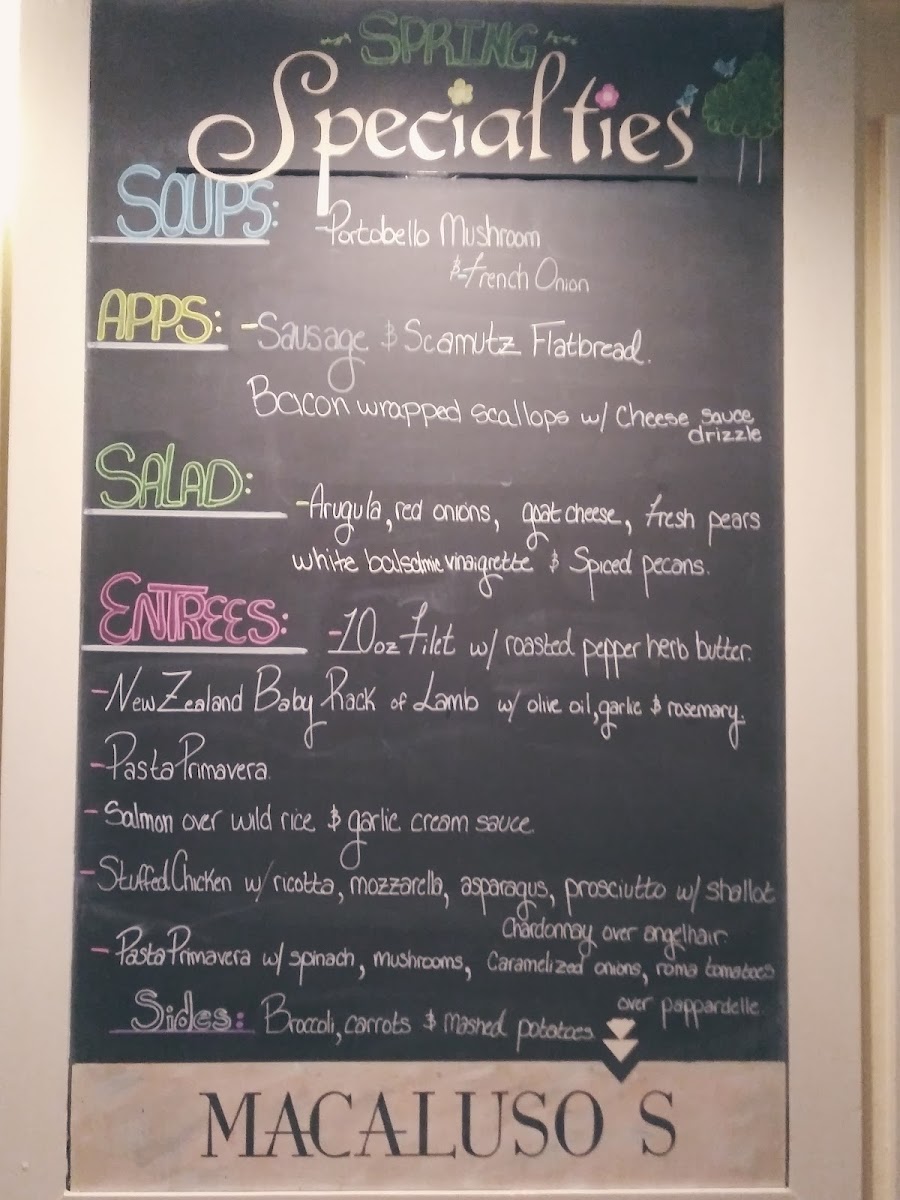 SPRING
Specialties
SOUPS: -Portobello Mushroom
& French Onion
APPS: -Sausage & Scamutz Flatbread.
Bacon wrapped scallops w/ Cheese sauce
drizzle
SALAD:
-Arugula, red onions, goat cheese, fresh pears
white balsamic vinaigrette & Spiced pecans.
ENTREES: -10oz Filet w/ roasted pepper herb butter.
-New Zealand Baby Rack of Lamb w/ olive oil, garlic & rosemary.
-Pasta Primavera.
-Salmon over wild rice & garlic cream sauce
-Stuffed Chicken w/ ricotta, mozzarella, asparagus, prosciutto w/ shallot
Chardonnay over angelhair.
-Pasta Primavera w/ spinach, mushrooms, Caramelized onions, roma tomatoes
over pappardelle.
Sides: Broccoli, carrots & mashed potatoes
MACALUSO'S